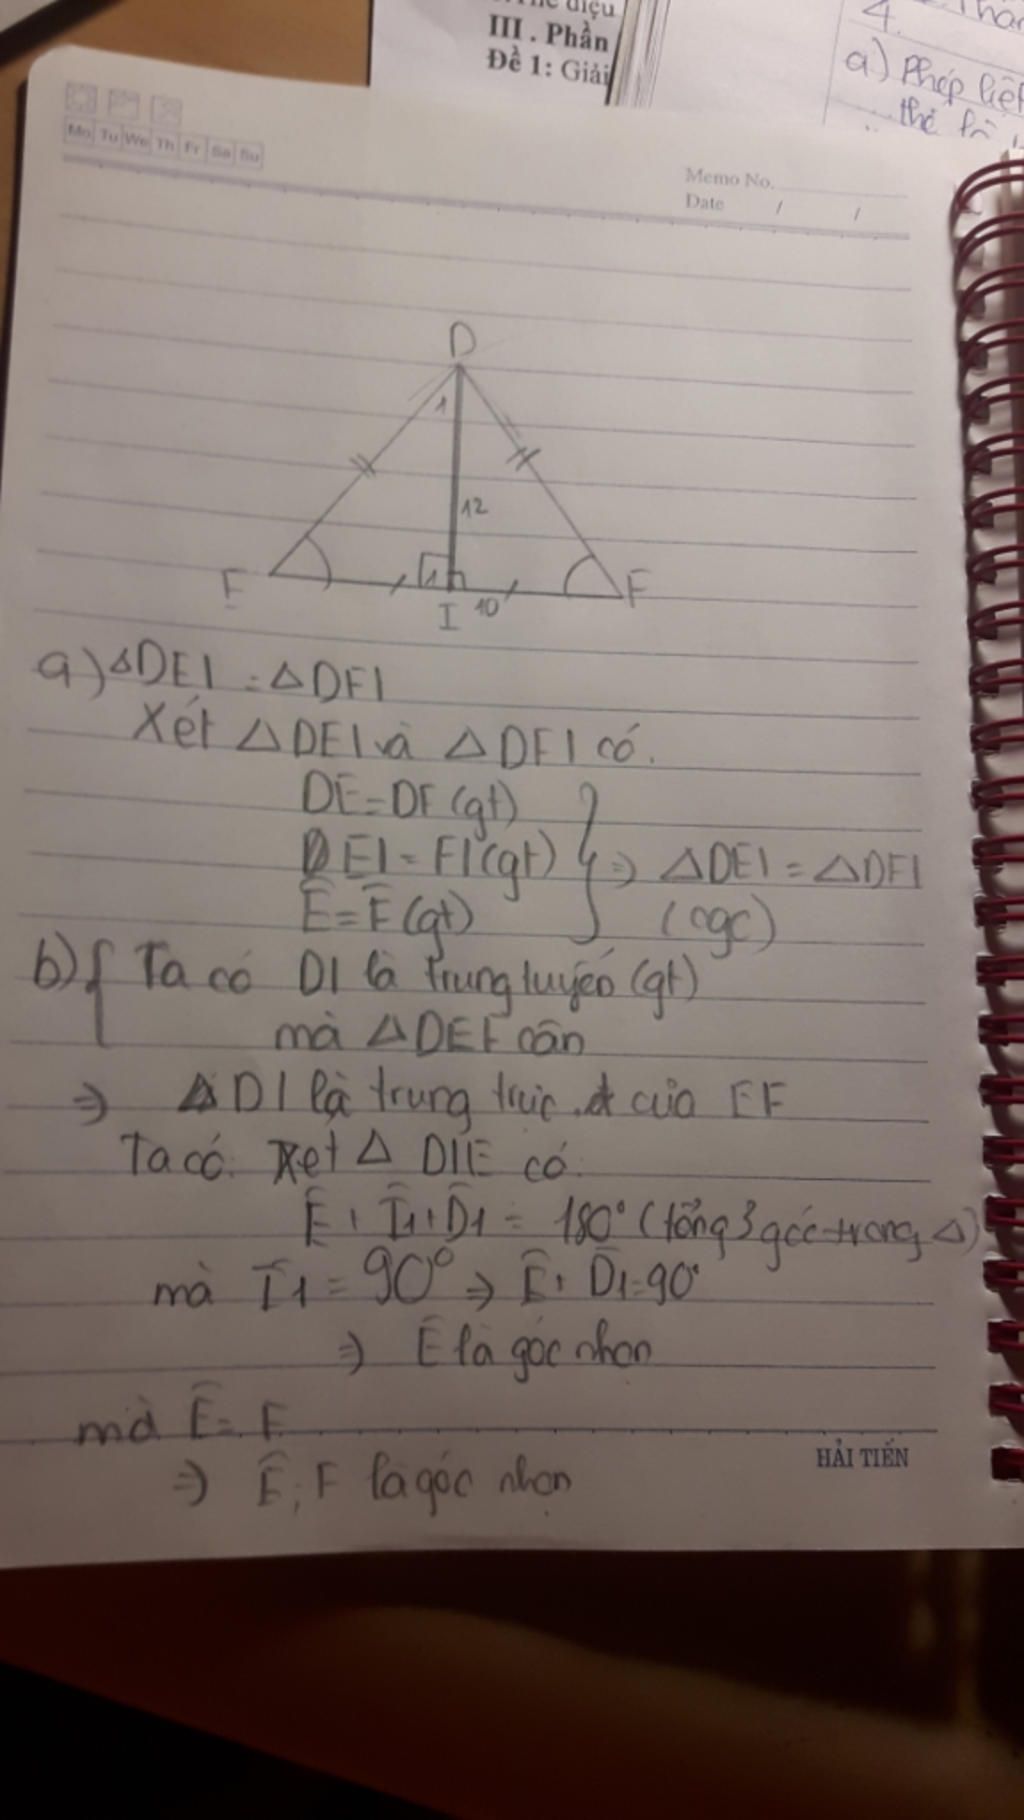 III . Phần
Đề 1: Giải
4.
a) Phép liệt
thế
Mo Tu We Th Fr Sa Su
Memo No.
Date / /
D
1
12
E I 10 F
a) △DEI = △DFI
Xét △DEI và △DFI có.
DE = DF (gt)
EI = FI (gt) } => △DEI = △DFI
Ê = F̂ (gt) (cgc)
b) { Ta có DI là trung tuyến (gt)
mà △DEF cân
=> DI là trung trực của EF
Ta có: Xet △ DIE có:
Ê + Î1 + D̂1 = 180° (tổng 3 góc trong △)
mà Î1 = 90° => Ê + D̂1 = 90°
=> Ê là góc nhọn
mà Ê = F
=> Ê, F là góc nhọn
HẢI TIẾN